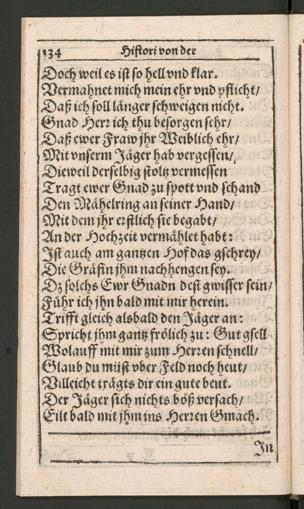 134 Histori von der
Doch weil es ist so hell vnd klar.
Vermahnet mich mein ehr vnd pflicht/
Daß ich soll länger schweigen nicht.
Gnad Herz ich thu besorgen sehr/
Daß ewer Fraw jhr Weiblich ehr/
Mit vnserm Jäger hab vergessen/
Dieweil derselbig stoltz vermessen
Tragt ewer Gnad zu spott vnd schand
Den Mähelring an seiner Hand/
Mit dem jhr erstlich sie begabt/
An der Hochzeit vermählet habt:
Ist auch am gantzen Hof das gschrey/
Die Gräfin jhm nachhengen sey.
Dz solchs Ewr Gnadn dest gwisser sein/
Führ ich jhn bald mit mir herein.
Trifft gleich alsbald den Jäger an:
Spricht jhm gantz frölich zu: Gut gsell
Wolauff mit mir zum Herren schnell/
Glaub du müst vber Feld noch heut/
Villeicht trägts dir ein gute beut.
Der Jäger sich nichts böß versach/
Eilt bald mit jhm ins Herren Gmach.
In